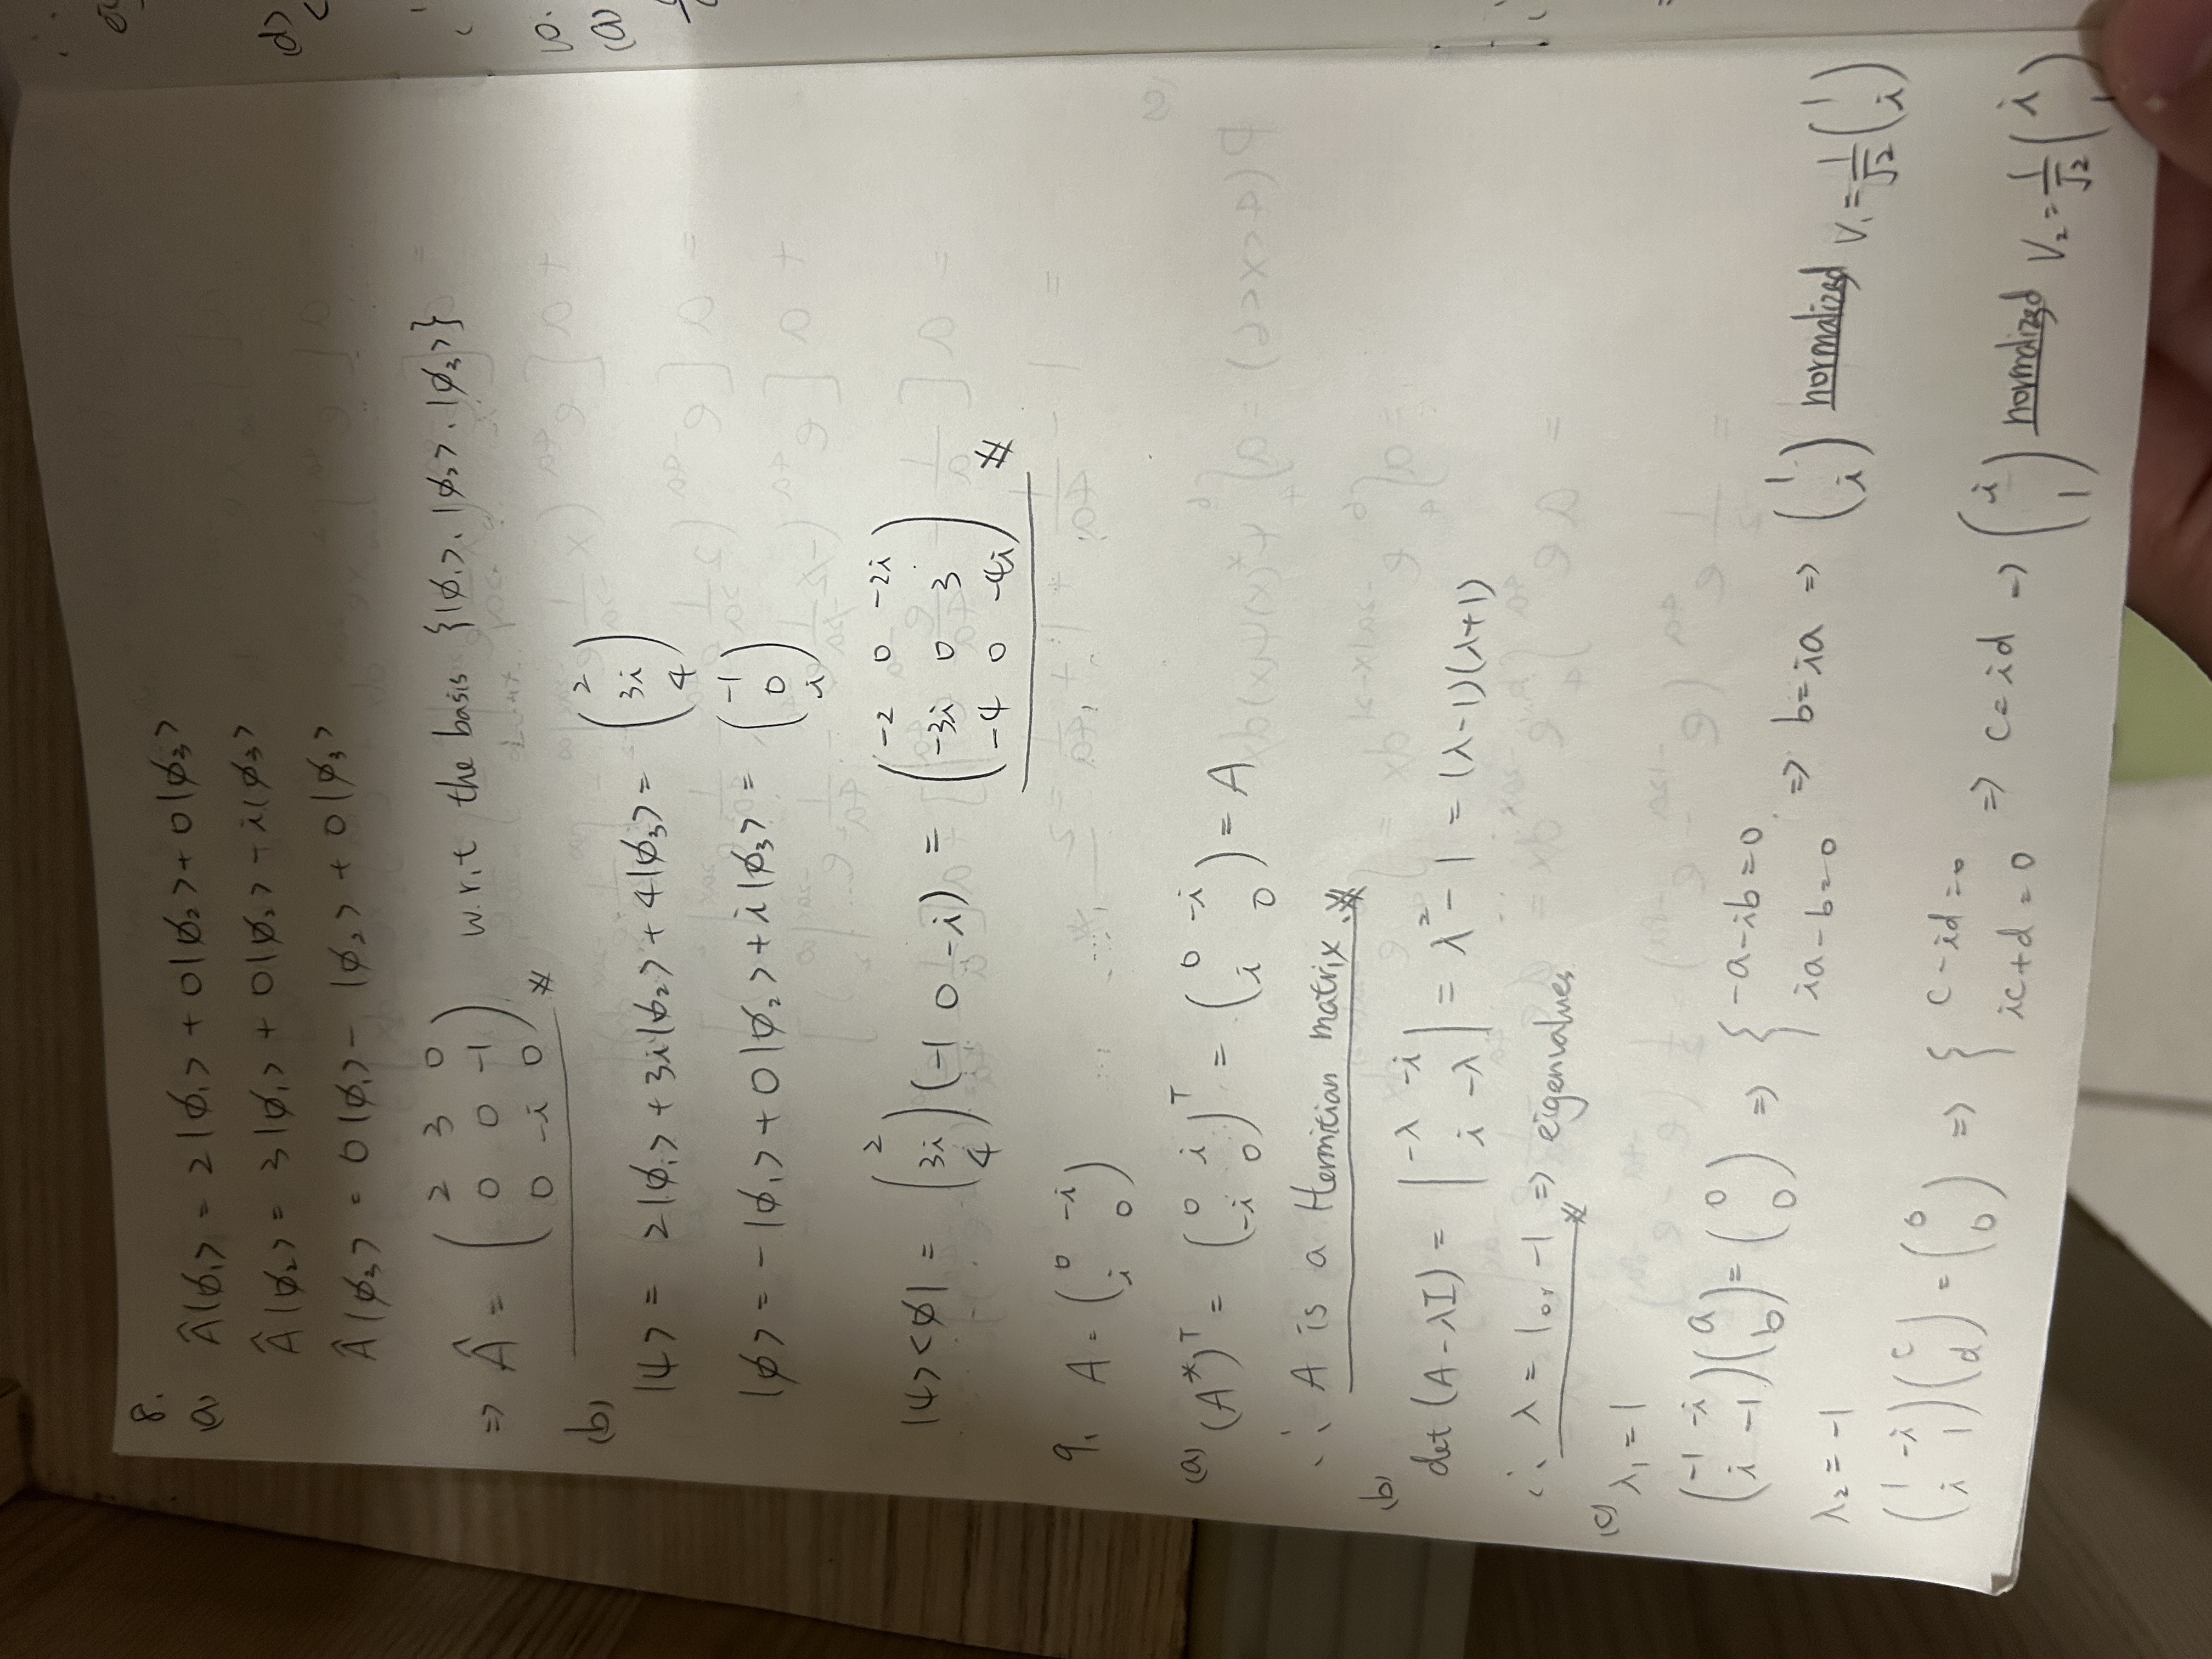 8.
(a) Â|ϕ₁> = 2|ϕ₁> + 0|ϕ₂> + 0|ϕ₃>
Â|ϕ₂> = 3|ϕ₁> + 0|ϕ₂> - i|ϕ₃>
Â|ϕ₃> = 0|ϕ₁> - |ϕ₂> + 0|ϕ₃>
=> Â = ( 2 3 0 ; 0 0 -1 ; 0 -i 0 ) w.r.t the basis {|ϕ₁>, |ϕ₂>, |ϕ₃>}
(b)
|ψ> = 2|ϕ₁> + 3i|ϕ₂> + 4|ϕ₃> = ( 2 ; 3i ; 4 )
|ϕ> = -|ϕ₁> + 0|ϕ₂> + i|ϕ₃> = ( -1 ; 0 ; i )
|ψ><ϕ| = ( 2 ; 3i ; 4 ) ( -1 0 -i ) = ( -2 0 -2i ; -3i 0 3 ; -4 0 -4i )
9. A = ( 0 -i ; i 0 )
(a) (A*)ᵀ = ( 0 i ; -i 0 )ᵀ = ( 0 -i ; i 0 ) = A
∴ A is a Hermitian matrix.
(b)
det (A - λI) = | -λ -i ; i -λ | = λ² - 1 = (λ-1)(λ+1)
∴ λ = 1 or -1 => eigenvalues
(c) λ₁ = 1
( -1 -i ; i -1 ) ( a ; b ) = ( 0 ; 0 ) => { -a-ib=0 ; ia-b=0 => b=ia => ( 1 ; i ) normalized V₁ = 1/√2 ( 1 ; i )
λ₂ = -1
( 1 -i ; i 1 ) ( c ; d ) = ( 0 ; 0 ) => { c-id=0 ; ic+d=0 => c=id => ( i ; 1 ) normalized V₂ = 1/√2 ( i ; 1 )
(d)
10.
(a)